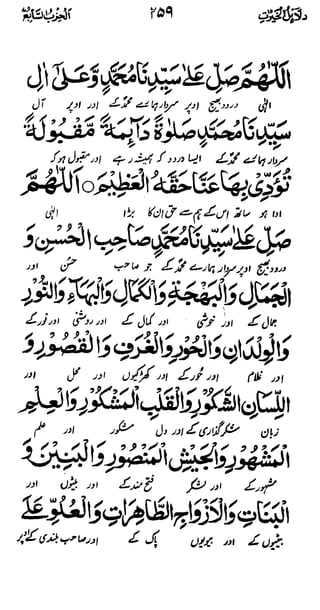 دلائل الخیرات ۲۵۹ الحزب السابع
اَللّٰهُمَّ صَلِّ عَلٰى سَيِّدِنَا مُحَمَّدٍ وَّعَلٰى اٰلِ
الٰہی درود بھیج اوپر سردار ہمارے محمد کے اور اوپر آل
سَيِّدِنَا مُحَمَّدٍ صَلٰوةً دَآئِمَةً مَّقْبُوْلَةً
سردار ہمارے محمد کے ایسا درود کہ ہمیشہ رہے اور مقبول ہو کہ
تُؤَدِّىْ بِهَا عَنَّا حَقَّهُ الْعَظِيْمَ ○ اَللّٰهُمَّ
ادا ہو ساتھ اس کے ہم سے حق ان کا بڑا الٰہی
صَلِّ عَلٰى سَيِّدِنَا مُحَمَّدٍ صَاحِبِ الْحُسْنِ وَ
درود بھیج اوپر سردار ہمارے محمد کے جو صاحب حسن اور
الْجَمَالِ وَالْبَهْجَةِ وَالْكَمَالِ وَالْبَهَآءِ وَالنُّوْرِ
جمال کے اور خوشی اور کمال کے اور روشنی اور نور کے
وَالْوِلْدَانِ وَالْحُوْرِ وَالْغُرَفِ وَالْقُصُوْرِ وَ
اور غلام اور حور کے اور کھڑکیوں اور محل اور
اللِّسَانِ الشَّكُوْرِ وَالْقَلْبِ الْمَشْكُوْرِ وَالْعِلْمِ
زبان شکر گذاری کے اور دل مشکور اور علم
الْمَشْهُوْرِ وَالْجَيْشِ الْمَنْصُوْرِ وَالْبَنِيْنَ وَ
مشہور کے اور لشکر فتح مند کے اور بیٹوں اور
الْبَنَاتِ وَالْاَزْوَاجِ الطَّاهِرَاتِ وَالْعُلُوِّ عَلَى
بیٹیوں کے اور بیویوں پاک کے اور صاحب بلندی کے اوپر